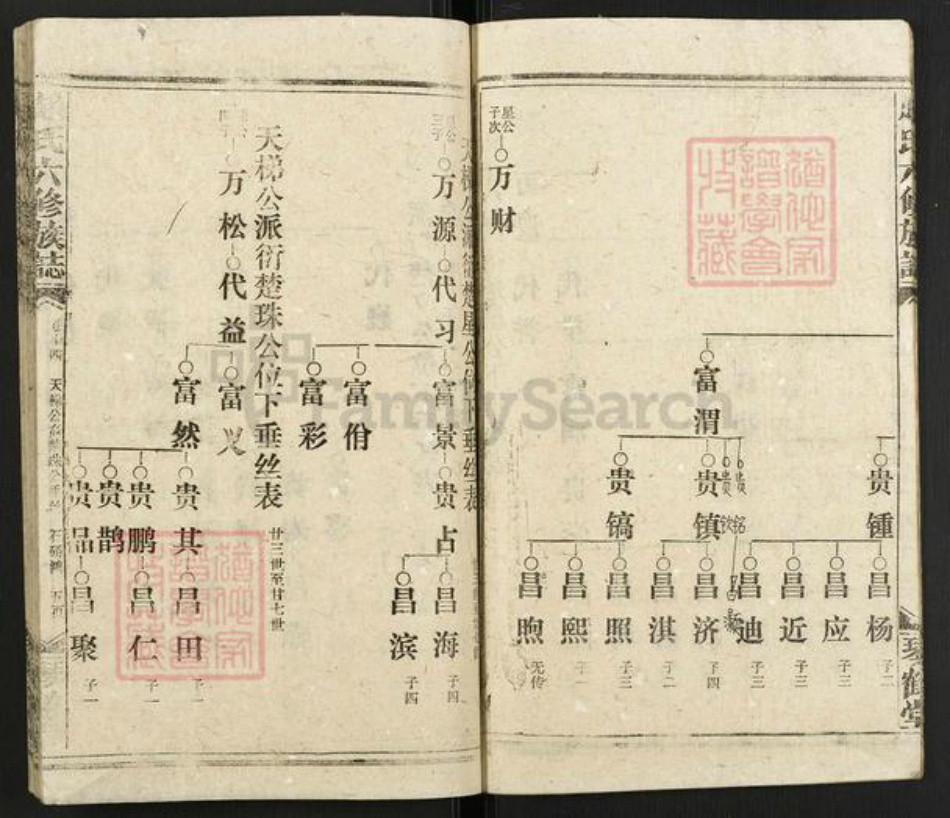 六修族誌
琴鹤堂
富渭
贵锺
贵铭
贵钦
贵镇
贵镐
昌杨 子二
昌应 子三
昌近 子三
昌迪 子三
昌济 子四
昌淇 子二
昌照 子三
昌熙 子一
昌煦 无传
星公次子
万财
万源
代习
富景
富佾
富彩
贵占
昌海 子四
昌滨 子四
天梯公派衍楚珠公位下垂丝表 廿三世至廿七世
万松
代益
富义
富然
贵其
贵鹏
贵鹊
贵品
昌田 子一
昌仁 子一
昌聚 子一
氏六修族誌
天梯公
FamilySearch